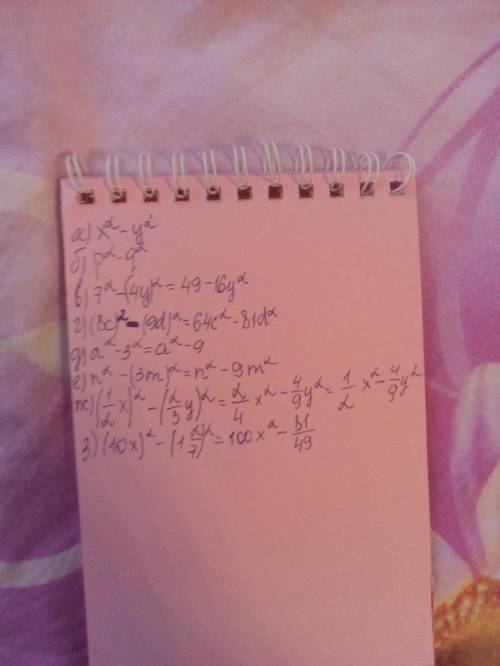 а) x² - y²
б) p² - q²
в) 7² - (4y)² = 49 - 16y²
г) (8c)² - (9d)² = 64c² - 81d²
д) a² - 3² = a² - 9
е) n² - (3m)² = n² - 9m²
ж) (1/2 x)² - (2/3 y)² = 2/4 x² - 4/9 y² = 1/2 x² - 4/9 y²
з) (10x)² - (1 2/7)² = 100x² - 81/49